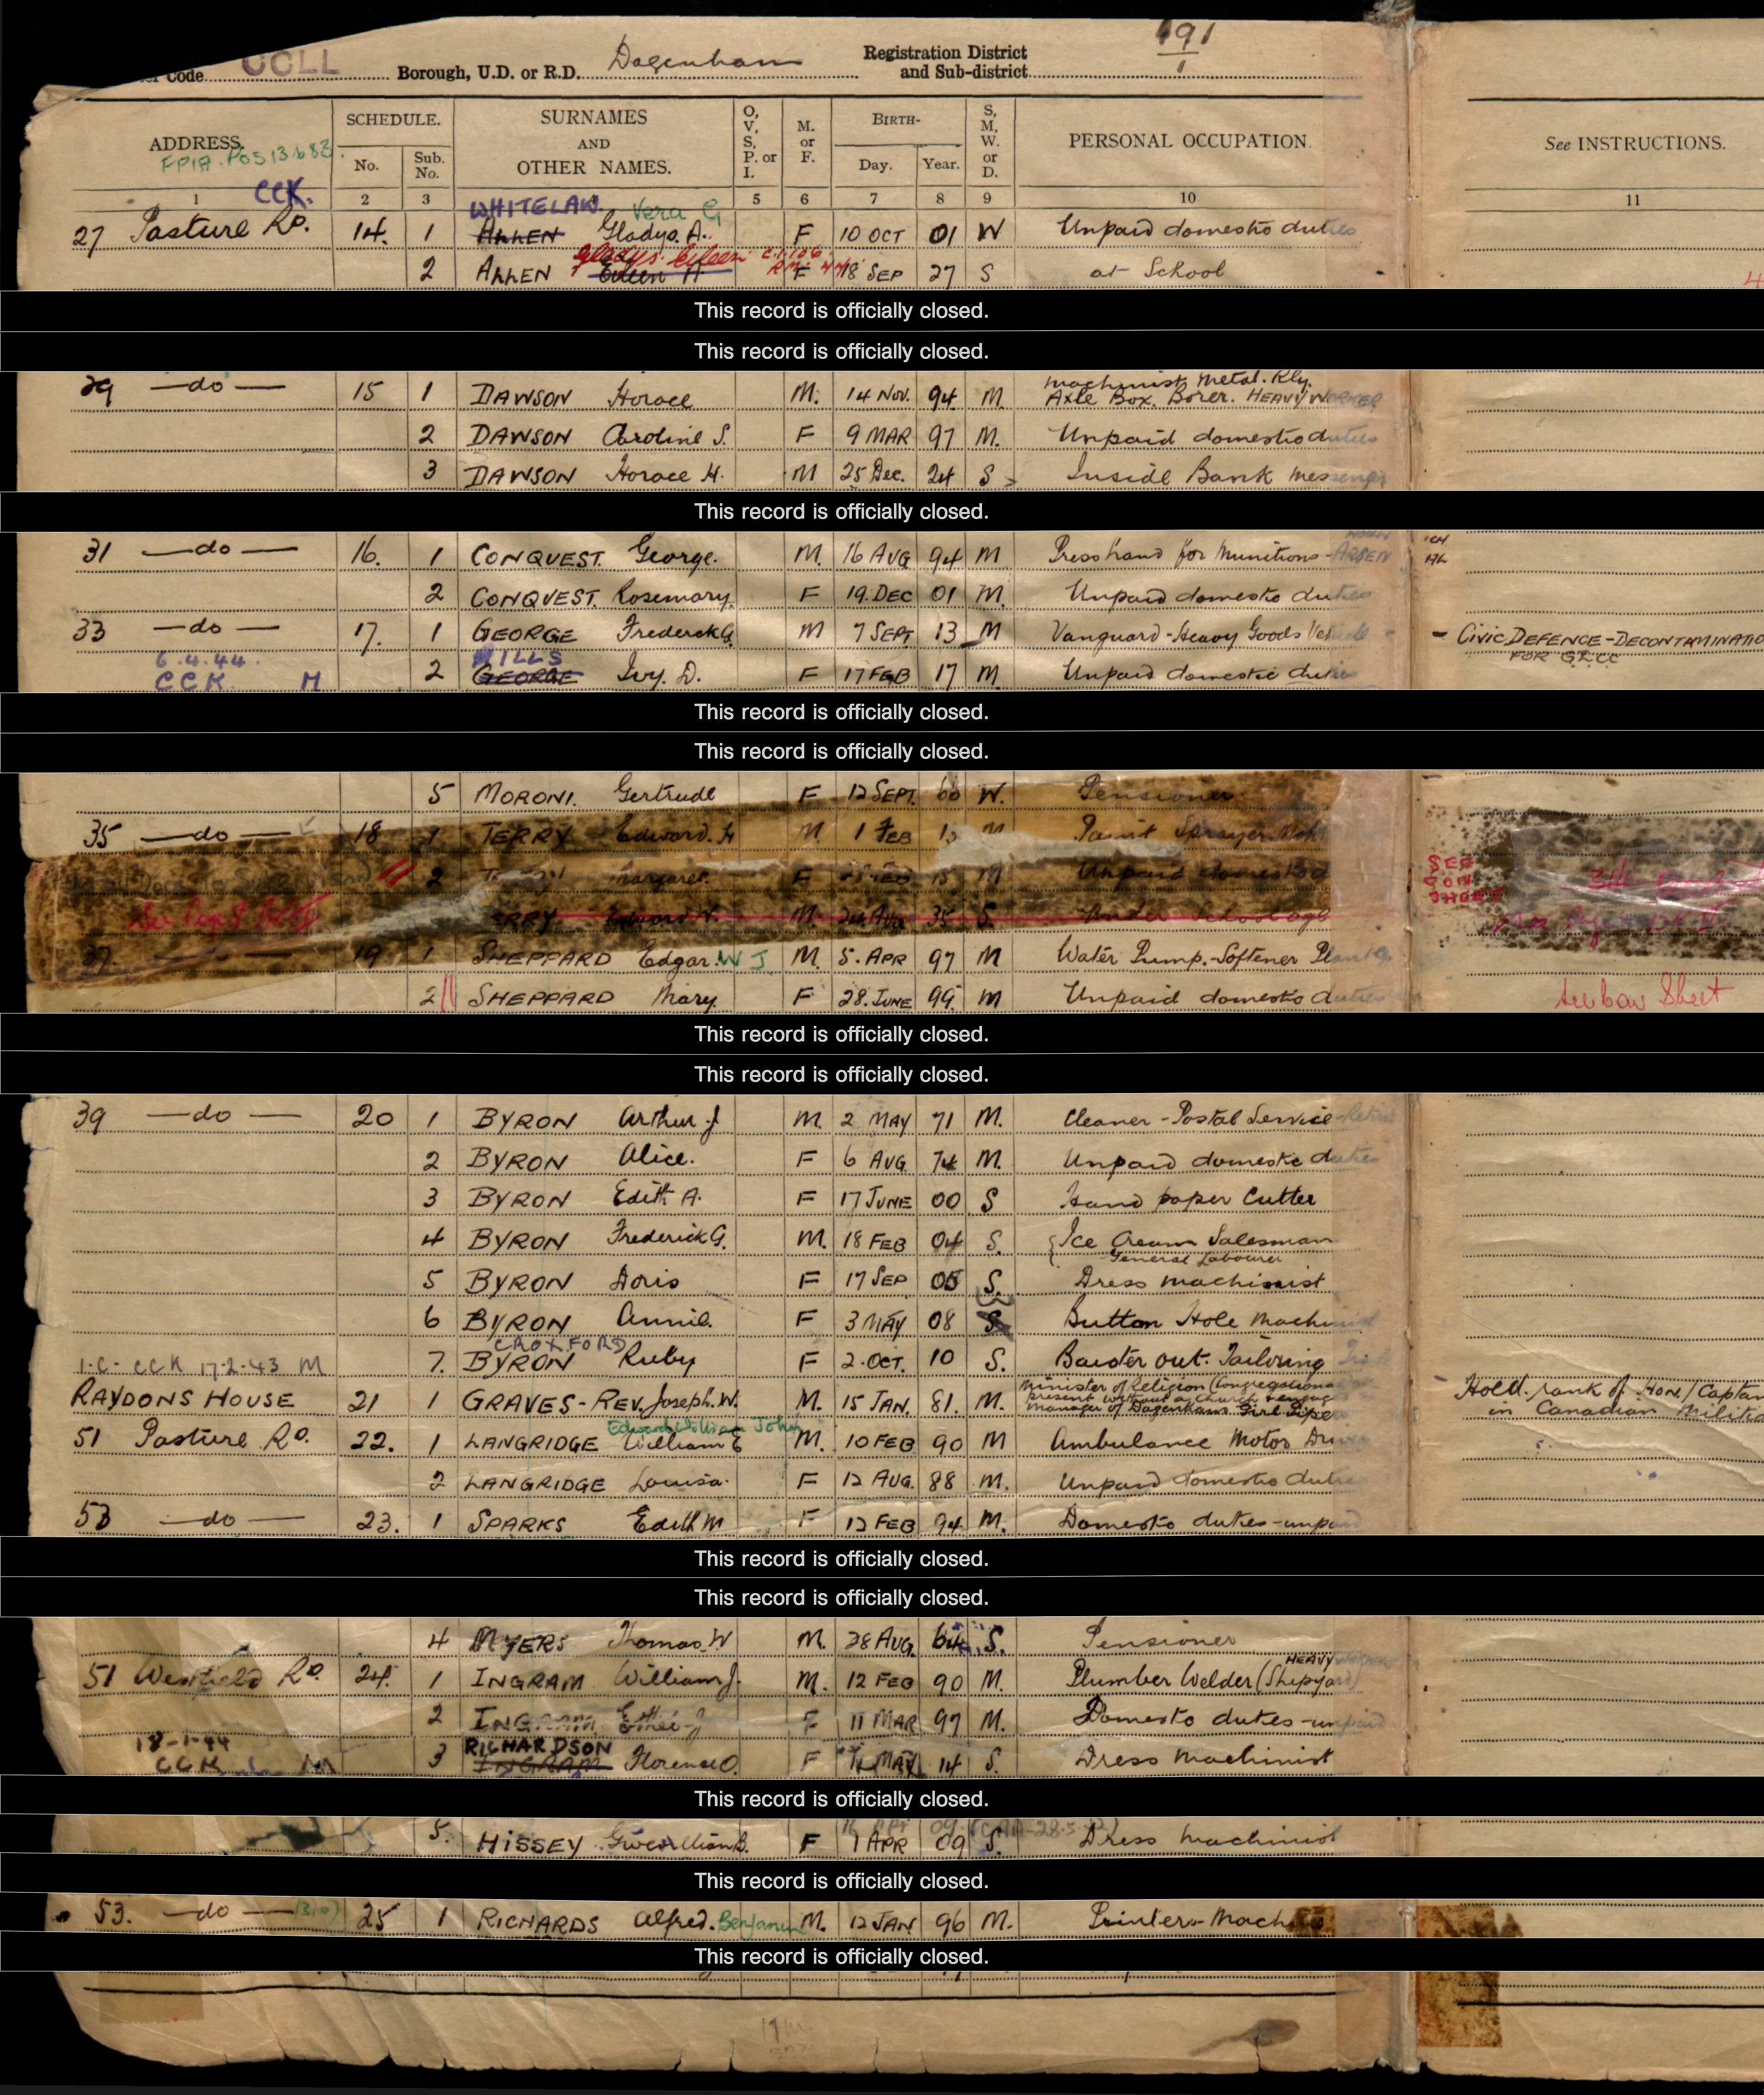 Code CCLL Borough, U.D. or R.D. Dagenham Registration District and Sub-district 191/1
ADDRESS. SCHEDULE. No. Sub. No. SURNAMES AND OTHER NAMES. O, V, S, P. or I. M. or F. BIRTH- Day. Year. S, M, W. or D. PERSONAL OCCUPATION. See INSTRUCTIONS.
1 2 3 4 5 6 7 8 9 10 11
CCK. WHITELAW. Vera G
27 Pasture Rd. 14. 1 ALLEN Gladys. A. F 10 OCT 01 W Unpaid domestic duties
Gladys Eileen
2 ALLEN Eileen A F 18 SEP 27 S at School
This record is officially closed.
This record is officially closed.
Machinist Metal. Rly.
29 —do— 15 1 DAWSON Horace M. 14 NOV. 94 M. Axle Box. Borer. HEAVY WORKER
2 DAWSON Caroline S. F 9 MAR 97 M. Unpaid domestic duties
3 DAWSON Horace H. M 25 Dec. 24 S Inside Bank Messenger
This record is officially closed.
31 —do— 16. 1 CONQUEST. George. M. 16 AUG 94 M Press hand for Munitions-
2 CONQUEST. Rosemary. F 19. DEC 01 M. Unpaid domestic duties
33 —do— 17. 1 GEORGE Frederick G. M 7 SEPT 13 M Vanguard-Heavy Goods Vehicle - CIVIC DEFENCE-DECONTAMINATIO
6.4.44. WILLS FOR
CCK. M 2 GEORGE Ivy. D. F 17 FEB 17 M. Unpaid domestic duties
This record is officially closed.
This record is officially closed.
5 MORONI. Gertrude F 12 SEPT. W. Pensioner
35 —do— 18 1 TERRY Edward. H M. 1 FEB M Paint Sprayer
2 Margaret. F M Unpaid domestic d
SEE CON SHEET
See Page 8 TERRY Edward M. 24 AUG 35 S. Under School age
37. 19 1 SHEPPARD Edgar. W J M. 5. APR 97 M Water Pump.-Softener Plant
2 SHEPPARD Mary. F 28. JUNE 99 M Unpaid domestic duties See con Sheet
This record is officially closed.
This record is officially closed.
39 —do— 20 1 BYRON Arthur J M. 2 MAY 71 M. Cleaner-Postal Service-
2 BYRON Alice. F 6 AUG 74 M. Unpaid domestic duties
3 BYRON Edith A. F 17 JUNE 00 S Hand paper Cutter
4 BYRON Frederick G. M. 18 FEB 04 S. Ice Cream Salesman
General Labourer
5 BYRON Doris F 17 SEP 05 S. Dress machinist
6 BYRON Annie. F 3 MAY 08 S. Button Hole Machinist
CROXFORD
CCK 17-2-43 M 7. BYRON Ruby F 2. OCT. 10 S. Baister out. Tailoring
Minister of Religion (Congregational
RAYDONS HOUSE 21 1 GRAVES-REV. Joseph. W. M. 15 JAN. 81. M. present without a Church & engag Held. rank of HON./Captai
Manager of Dagenham Girl Pipe in Canadian Militia
Edward William John
51 Pasture Rd. 22. 1 LANGRIDGE William E M. 10 FEB 90 M Ambulance Motor Driver
2 LANGRIDGE Louisa. F 12 AUG. 88 M. Unpaid domestic duties
53 —do— 23. 1 SPARKS Edith M F 12 FEB 94 M. Domestic duties-unpaid
This record is officially closed.
This record is officially closed.
4 MYERS Thomas W M. 28 AUG. 64 S. Pensioner
HEAVY
51 Westfield Rd. 24. 1 INGRAM William J. M. 12 FEB 90 M. Plumber Welder (Shipyard)
2 INGRAM F 11 MAR 97 M. Domestic duties-unpaid
18-1-44 RICHARDSON
CCK M 3 INGRAM Florence O. F 14 MAY 14 S. Dress Machinist
This record is officially closed.
5. HISSEY Gwenllian B. F 1 APR 09 S. Dress Machinist
This record is officially closed.
53. —do— 25 1 RICHARDS Alfred. Benjamin M. 12 JAN 96 M. Printers-Mach
This record is officially closed.